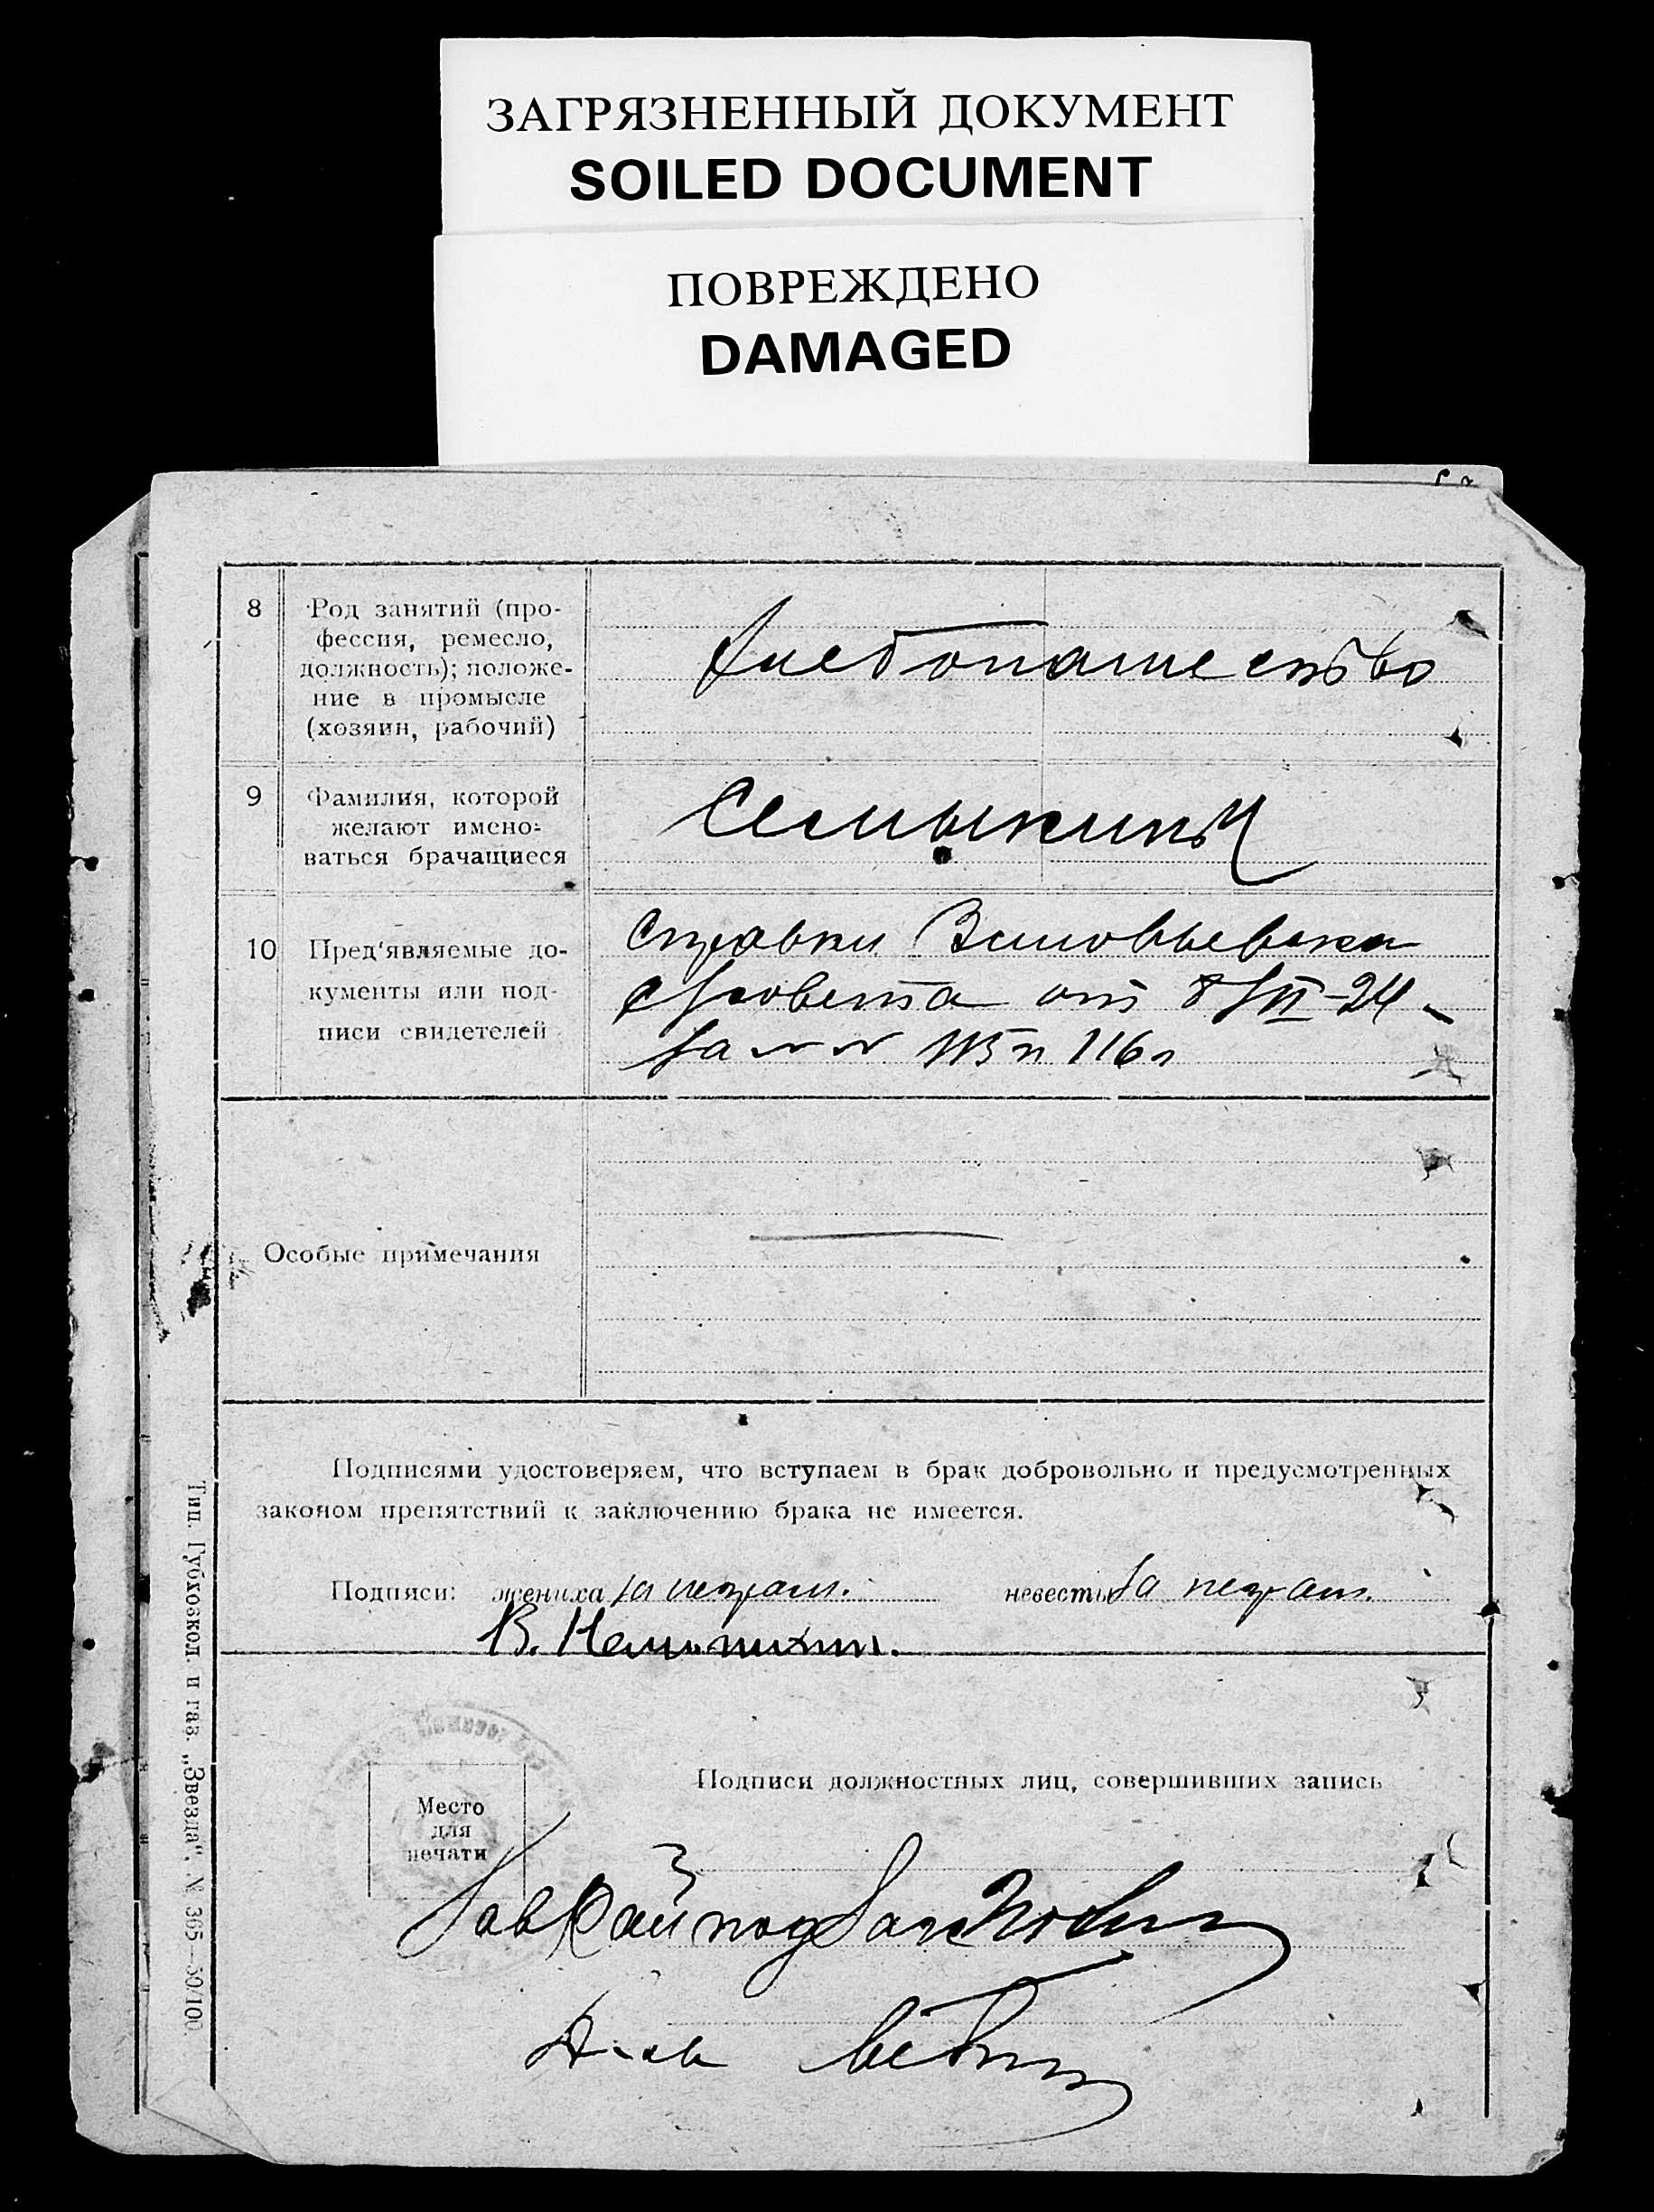 ЗАГРЯЗНЕННЫЙ ДОКУМЕНТ
SOILED DOCUMENT
ПОВРЕЖДЕНО
DAMAGED
8
Род занятий (про-
фессия, ремесло,
должность); положе-
ние в промысле
(хозяин, рабочий)
Хлебопашество
9
Фамилия, которой
желают имено-
ваться брачащиеся
10
Пред'являемые до-
кументы или под-
писи свидетелей
Справки Зиновьевска
с/совета от 8/VI-24
за №№ 115 и 116
Особые примечания
Подписями удостоверяем, что вступаем в брак добровольно и предусмотренных
законом препятствий к заключению брака не имеется.
Подписи: жениха за неграм. невесты за неграм.
В.
Подписи должностных лиц, совершивших запись
Место
для
печати
Зав
Тип. Губховкол. и газ. „Звезда". № 365—50/100.